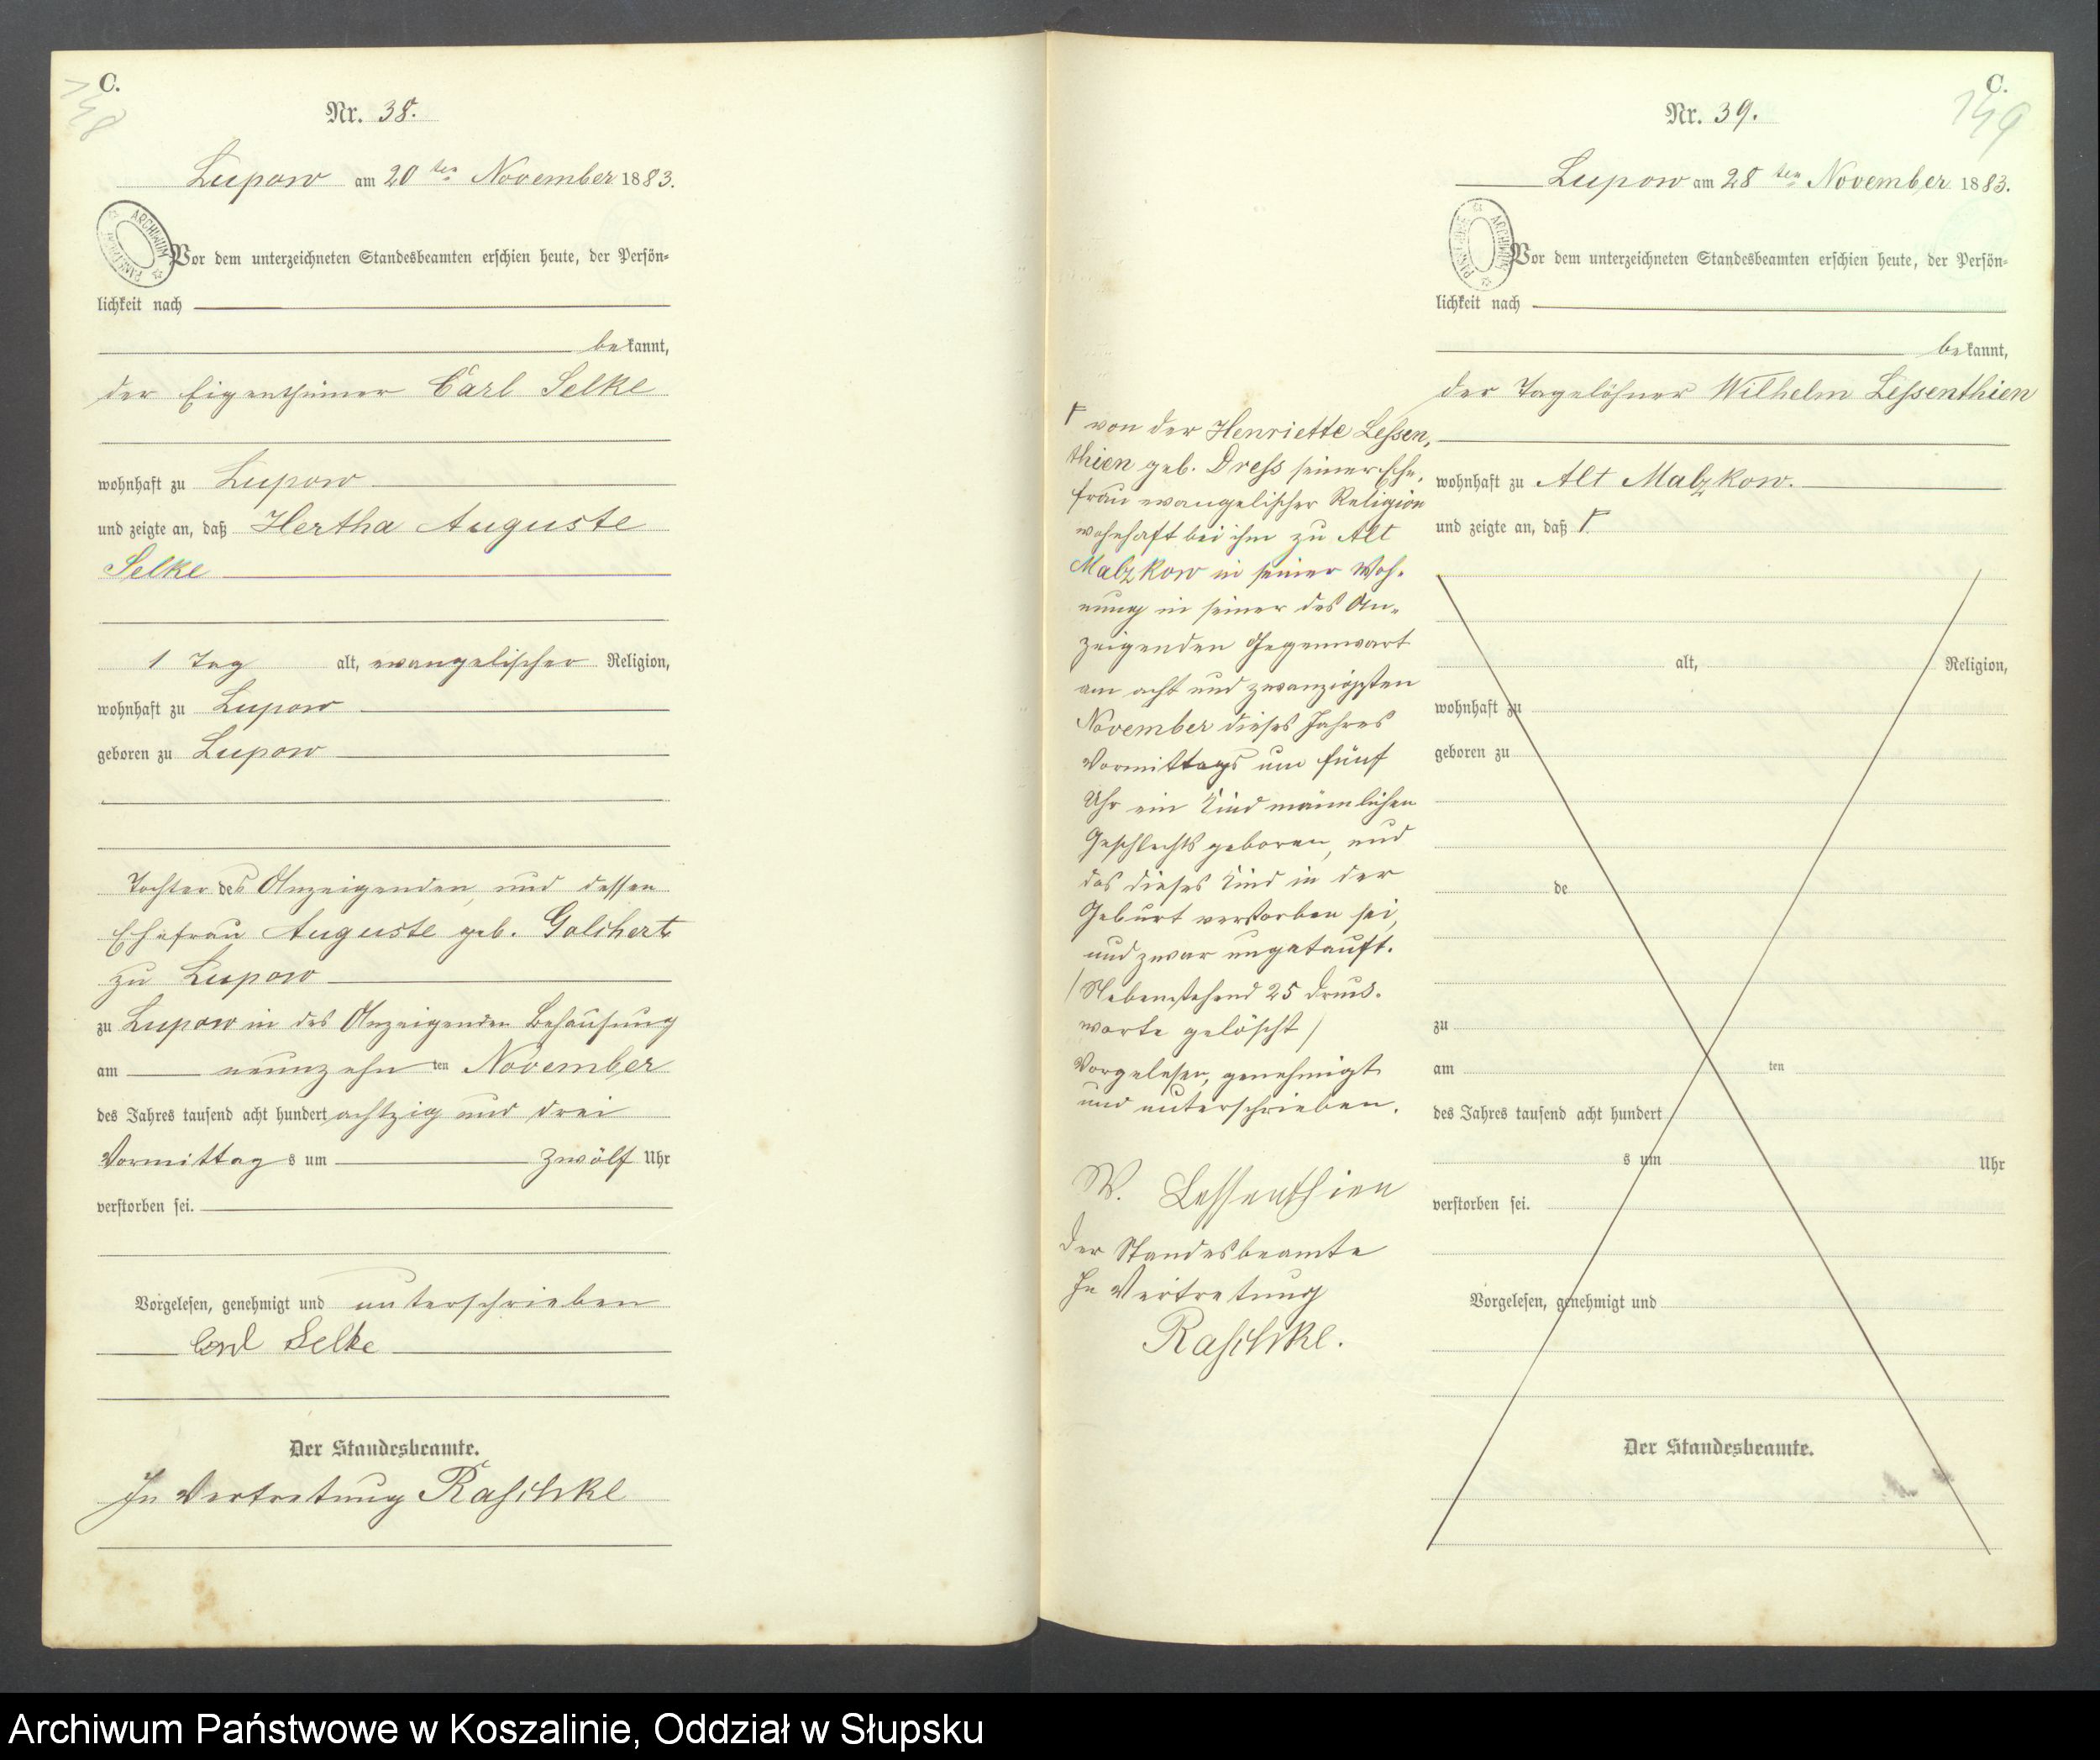 C.
148
Nr. 38.
Lupow am 20ten November 1883.
Vor dem unterzeichneten Standesbeamten erschien heute, der Persön-
lichkeit nach
bekannt,
der Eigenthümer Carl Selke
wohnhaft zu Lupow
und zeigte an, daß Hertha Auguste
Selke
1 Tag alt, evangelischer Religion,
wohnhaft zu Lupow
geboren zu Lupow
Tochter des Anzeigenden und dessen
Ehefrau Auguste geb. Golchert
zu Lupow
zu Lupow in des Anzeigenden Behausung
am neunzehn ten November
des Jahres tausend acht hundert achtzig und drei
Vormittag s um zwölf Uhr
verstorben sei.
Vorgelesen, genehmigt und unterschrieben
Carl Selke
Der Standesbeamte.
In Vertretung Raschke
C.
149
Nr. 39.
Lupow am 28ten November 1883.
ARCHIWUM
Vor dem unterzeichneten Standesbeamten erschien heute, der Persön-
lichkeit nach
bekannt,
der Tagelöhner Wilhelm Lessenthien
wohnhaft zu Alt Malzkow.
und zeigte an, daß
alt, Religion,
wohnhaft zu
geboren zu
de
zu
am ten
des Jahres tausend acht hundert
s um Uhr
verstorben sei.
Vorgelesen, genehmigt und
Der Standesbeamte.
von der Henriette Lessen-
thien geb. Dress seiner Ehe-
frau evangelischer Religion
wohnhaft bei ihm zu Alt
Malzkow in seiner Woh-
nung in seiner des An-
zeigenden Gegenwart
am acht und zwanzigsten
November dieses Jahres
Vormittags um fünf
Uhr ein Kind männlichen
Geschlechts geboren, und
das dieses Kind in der
Geburt verstorben sei,
und zwar ungetauft.
/Nebenstehend 25 Druck-
worte gelöscht/
Vorgelesen, genehmigt
und unterschrieben.
W. Lessenthien
Der Standesbeamte
In Vertretung
Raschke.
Archiwum Państwowe w Koszalinie, Oddział w Słupsku